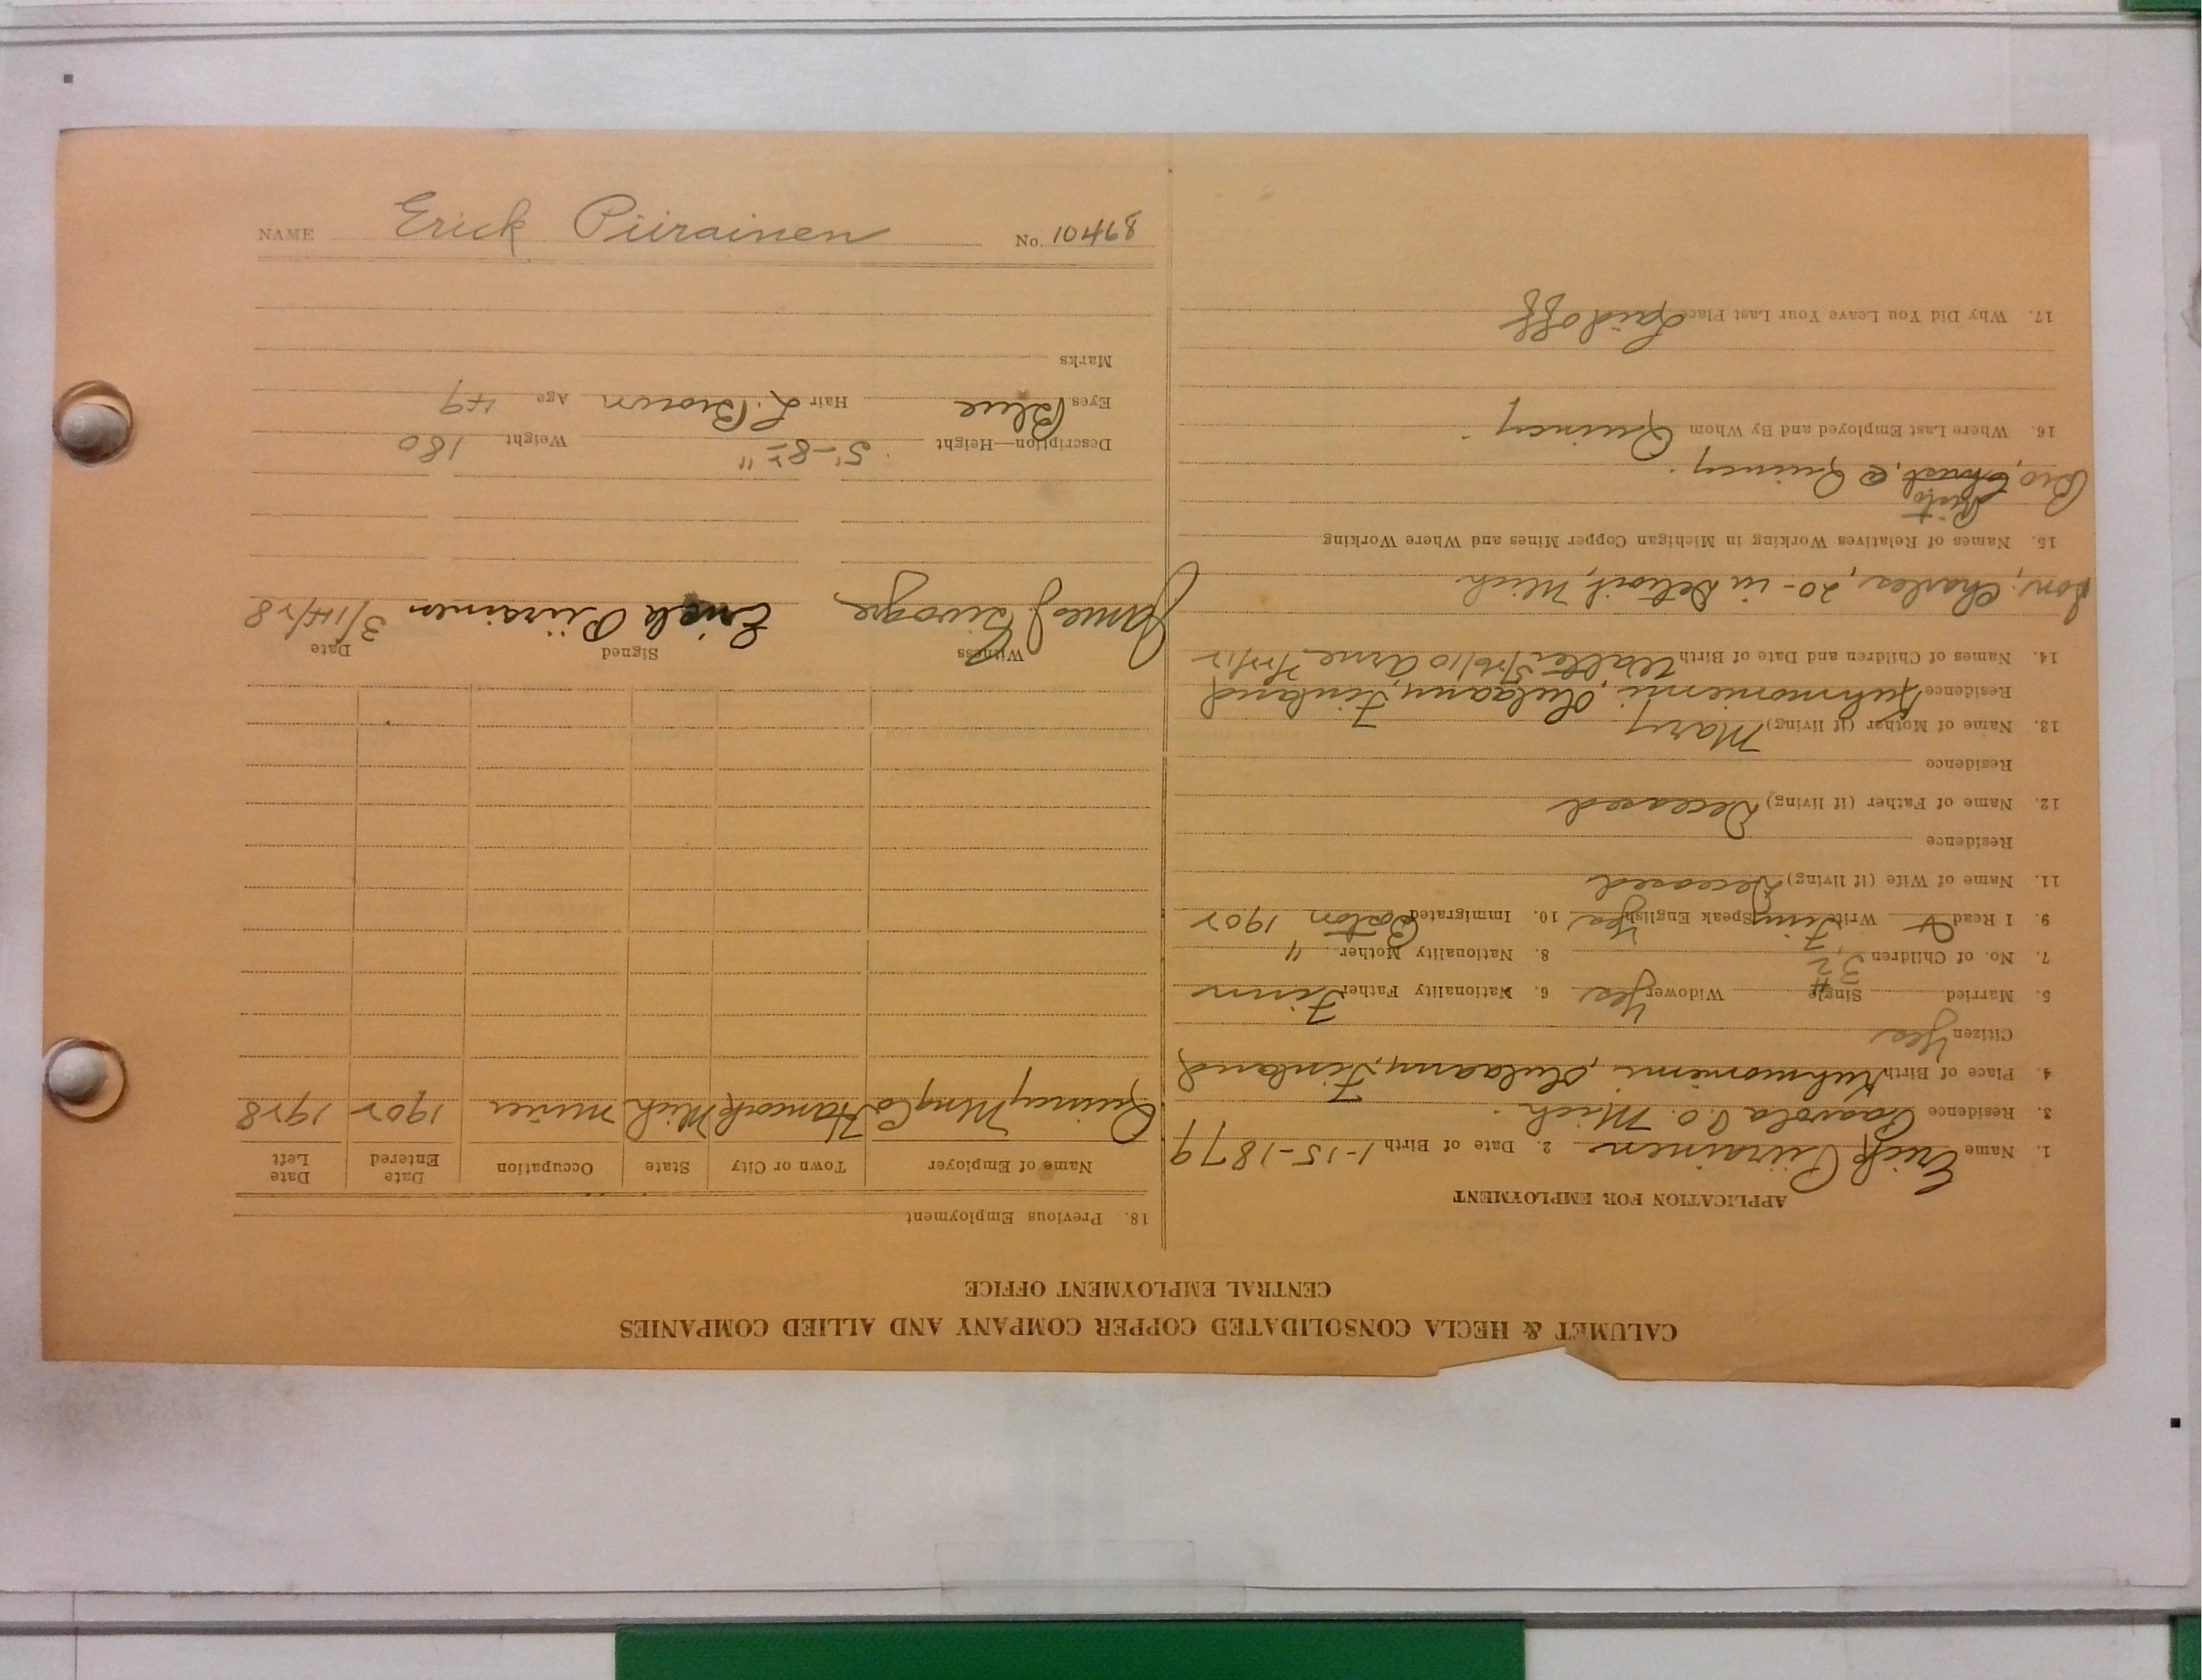 NAME Erick Piirainen No. 10468
CALUMET & HECLA CONSOLIDATED COPPER COMPANY AND ALLIED COMPANIES
CENTRAL EMPLOYMENT OFFICE
APPLICATION FOR EMPLOYMENT
1. Name Erick Piirainen 2. Date of Birth 1-15-1879
3. Residence Paavola P.O. Mich.
4. Place of Birth Kuhmoniemi, Oulaany, Finland
Citizen Yes
5. Married Single Widower Yes 6. Nationality Father Finn
7. No. of Children 3 8. Nationality Mother "
9. I Read & Write Finn Speak English Yes 10. Immigrated Boston 1902
11. Name of Wife (if living) Deceased
Residence
12. Name of Father (if living) Deceased
Residence
13. Name of Mother (if living) Mary
Residence Kuhmoniemi, Oulaany, Finland
14. Names of Children and Date of Birth Walter 5/26/10 Arne
Son, Charles, 20 - in Detroit, Mich.
15. Names of Relatives Working in Michigan Copper Mines and Where Working
Bro, @ Quincy.
16. Where Last Employed and By Whom Quincy.
17. Why Did You Leave Your Last Place Laid off
18. Previous Employment
Name of Employer Town or City State Occupation Date Entered Date Left
Quincy Mng Co Hancock Mich miner 1902 1928
Witness Signed Date
James J Erick Piirainen 3/14/28
Description—Height 5'-8½" Weight 180
Eyes Blue Hair L. Brown Age 49
Marks